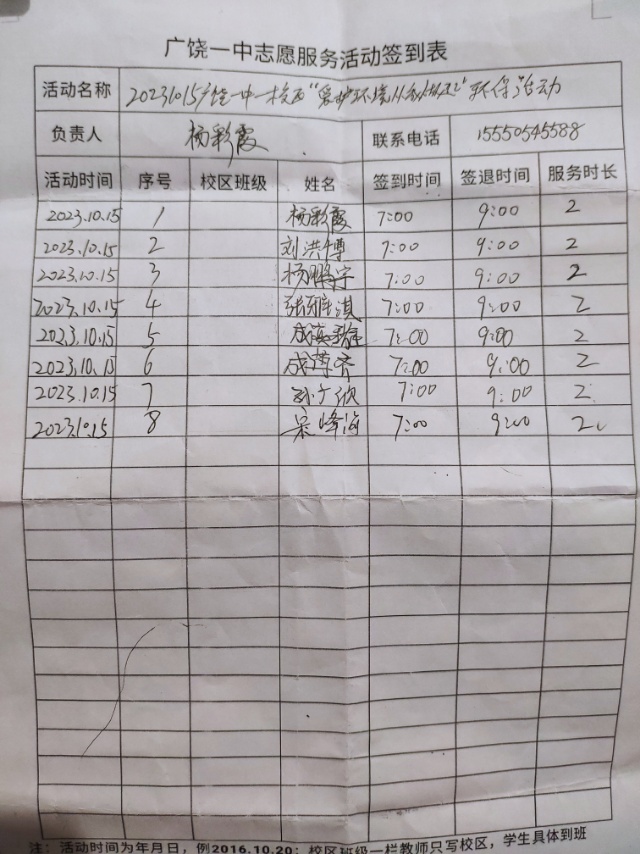 广饶一中志愿服务活动签到表
活动名称 20231015广饶一中一校区“爱护环境从我做起”环保活动
负责人 杨彩霞 联系电话 15550545588
活动时间 序号 校区班级 姓名 签到时间 签退时间 服务时长
2023.10.15 1 杨彩霞 7:00 9:00 2
2023.10.15 2 刘洪博 7:00 9:00 2
2023.10.15 3 杨鹏宇 7:00 9:00 2
2023.10.15 4 张维淇 7:00 9:00 2
2023.10.15 5 7:00 9:00 2
2023.10.15 6 成博 7:00 9:00 2
2023.10.15 7 孙广欣 7:00 9:00 2
2023.10.15 8 吴峰海 7:00 9:00 2
注：活动时间为年月日，例2016.10.20；校区班级一栏教师只写校区，学生具体到班